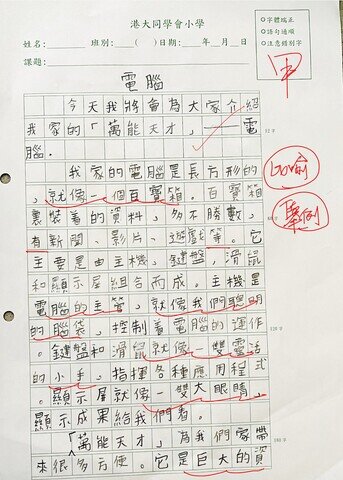 港大同學會小學
姓名: 班別: ( ) 日期: 年 月 日
課題:
字體端正
語句通順
注意錯別字
甲
電腦
今天我將會為大家介紹
我家的「萬能天才」——電
腦。
我家的電腦是長方形的
,就像一個百寶箱。百寶箱
裏裝着的資料,多不勝數,
有新聞、影片、遊戲等。它
主要是由主機,鍵盤,滑鼠
和顯示屏組合而成。主機是
電腦的主管,就像我們聰明
的腦袋,控制着電腦的運作
。鍵盤和滑鼠就像一雙靈活
的小手,指揮各種應用程式
。顯示屏就像一雙大眼睛,
顯示成果給我們看。
「萬能天才」為我們家帶
來很多方便。它是巨大的資
比喻
舉例